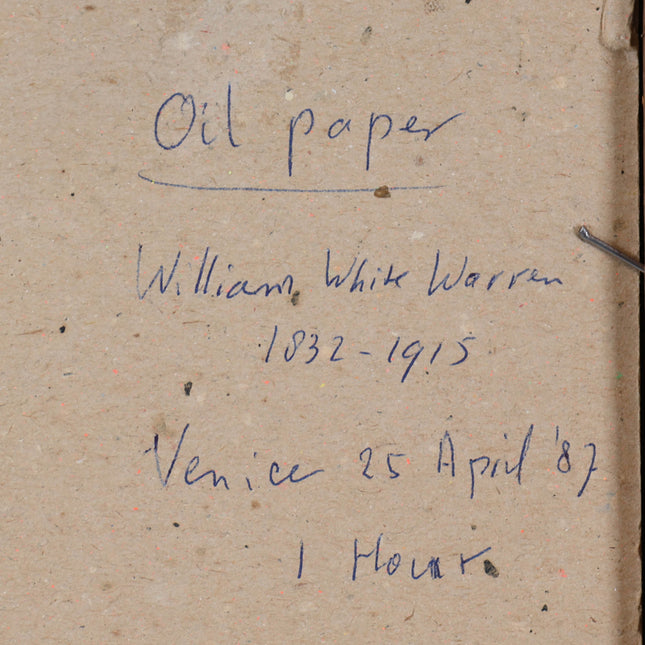 Oil paper
William White Warren
1832-1915
Venice 25 April '87
1 Hour